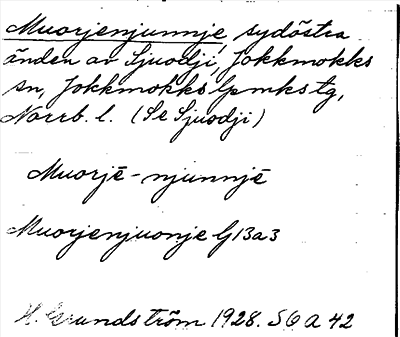 Muorjenjunnjè, sydöstra
änden av Sjuodji, Jokkmokks
sn, Jokkmokks lpmks tg,
Norrb. l. (Se Sjuodji)
Muorjē-njunnjē
Muorjenjuonje G13a3
H. Grundström 1928. S6 A 42